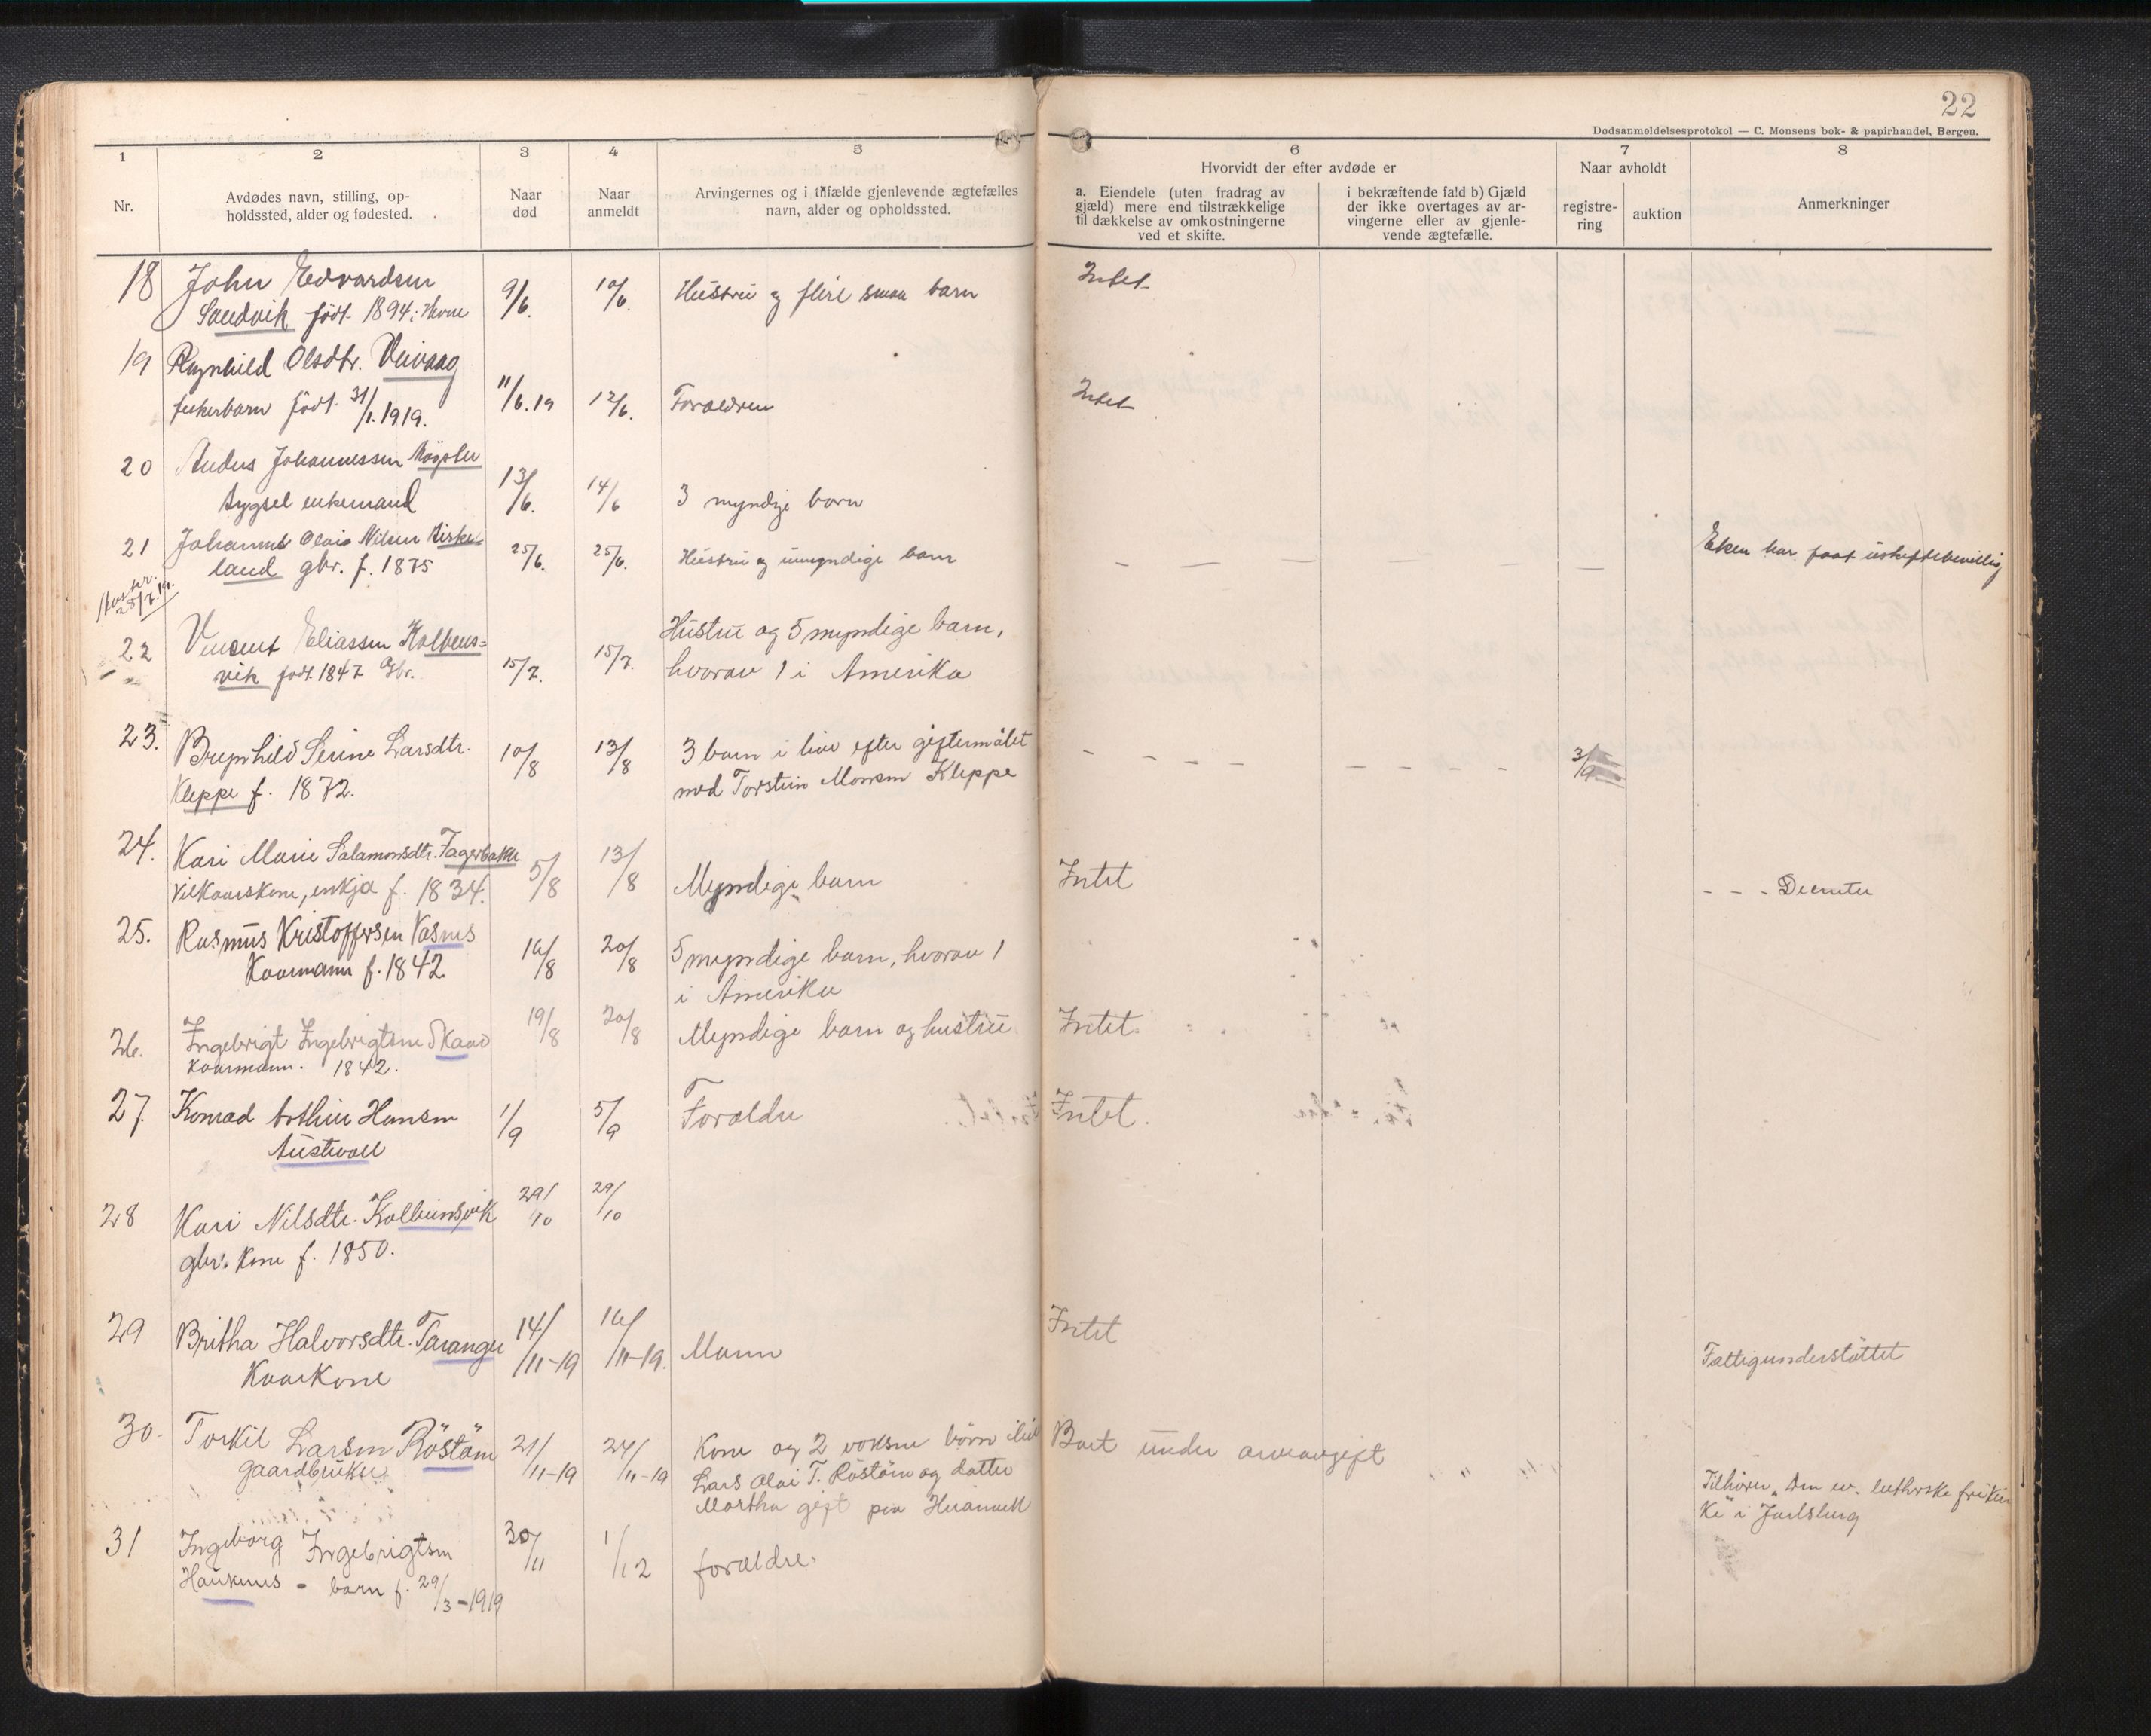 22
Dødsanmeldelsesprotokol — C. Monsens bok- & papirhandel, Bergen.
1 2 3 4 5 6 7 8
Nr.
Avdødes navn, stilling, op-
holdssted, alder og fødested.
Naar
død
Naar
anmeldt
Arvingernes og i tilfælde gjenlevende ægtefælles
navn, alder og opholdssted.
Hvorvidt der efter avdøde er
a. Eiendele (uten fradrag av
gjæld) mere end tilstrækkelige
til dækkelse av omkostningerne
ved et skifte.
i bekræftende fald b) Gjæld
der ikke overtages av ar-
vingerne eller av gjenle-
vende ægtefælle.
Naar avholdt
registre-
ring
auktion
Anmerkninger
18 John Edvardsen
Sandvik født 1894 i 9/6. 10/6. Hustru og flere smaa barn Intet
19 Ragnhild Olsdtr. Veivaag
født 31/1.1919. 11/6.19 12/6. Forældren Intet
20 Anders Johannessen Møgster
enkemand 13/6. 14/6 3 myndige born
21 Johannes Olais Nilsen Birke-
land gbr. f. 1875 25/6. 25/6. Hustru og umyndige barn — — — — — — Eken har faat uskiftebevilling
25/7.19.
22 Vincent Eliassen Kolbens=
vik født 1847 Gbr. 15/7. 15/7. Hustru og 5 myndige barn,
hvorav 1 i Amerika
23. Brynhild Serine Larsdtr.
Kleppe f. 1872. 10/8 13/8 3 barn i live efter giftermålet
med Torstein Monsen Kleppe - - - - - - - - 3/9
24. Kari Marie Salamonsdtr. Fagerbakke
Vilkaarskone, enkja f. 1834. 5/8 13/8 Myndige barn Intet - - - Decruter
25. Rasmus Kristoffersen Vasnes
Kaarmann f. 1842. 16/8 20/8 5 myndige barn, hvorav 1
i Amerika
26. Ingebrigt Ingebrigtsen Skaar
Kaarmann. 1842. 19/8 20/8 Myndige barn og hustru Intet.
27. Konrad Hansen
Austevoll 1/9 5/9 Forældre Intet.
28 Kari Nilsdtr. Kolbeinsvik
gbr. kone f. 1850. 29/10 29/10
29 Britha Halvorsdtr. Taranger
Kaarkone 14/11-19 16/11-19. Mann Intet Fattigunderstöttet
30. Torkil Larsen Röstöen
gaardbruker 21/11-19 24/11-19 Kone og 2 voksne börn i live
Lars Olai T. Röstöen og datter
Martha gift paa Boet under arveavgift
Tilhörer "Den ev. lutherske frikir
ke" i Jarlsberg
31 Ingeborg Ingebrigtsen
Hauknes - barn f. 29/3-1919 30/11 1/12 forældre.